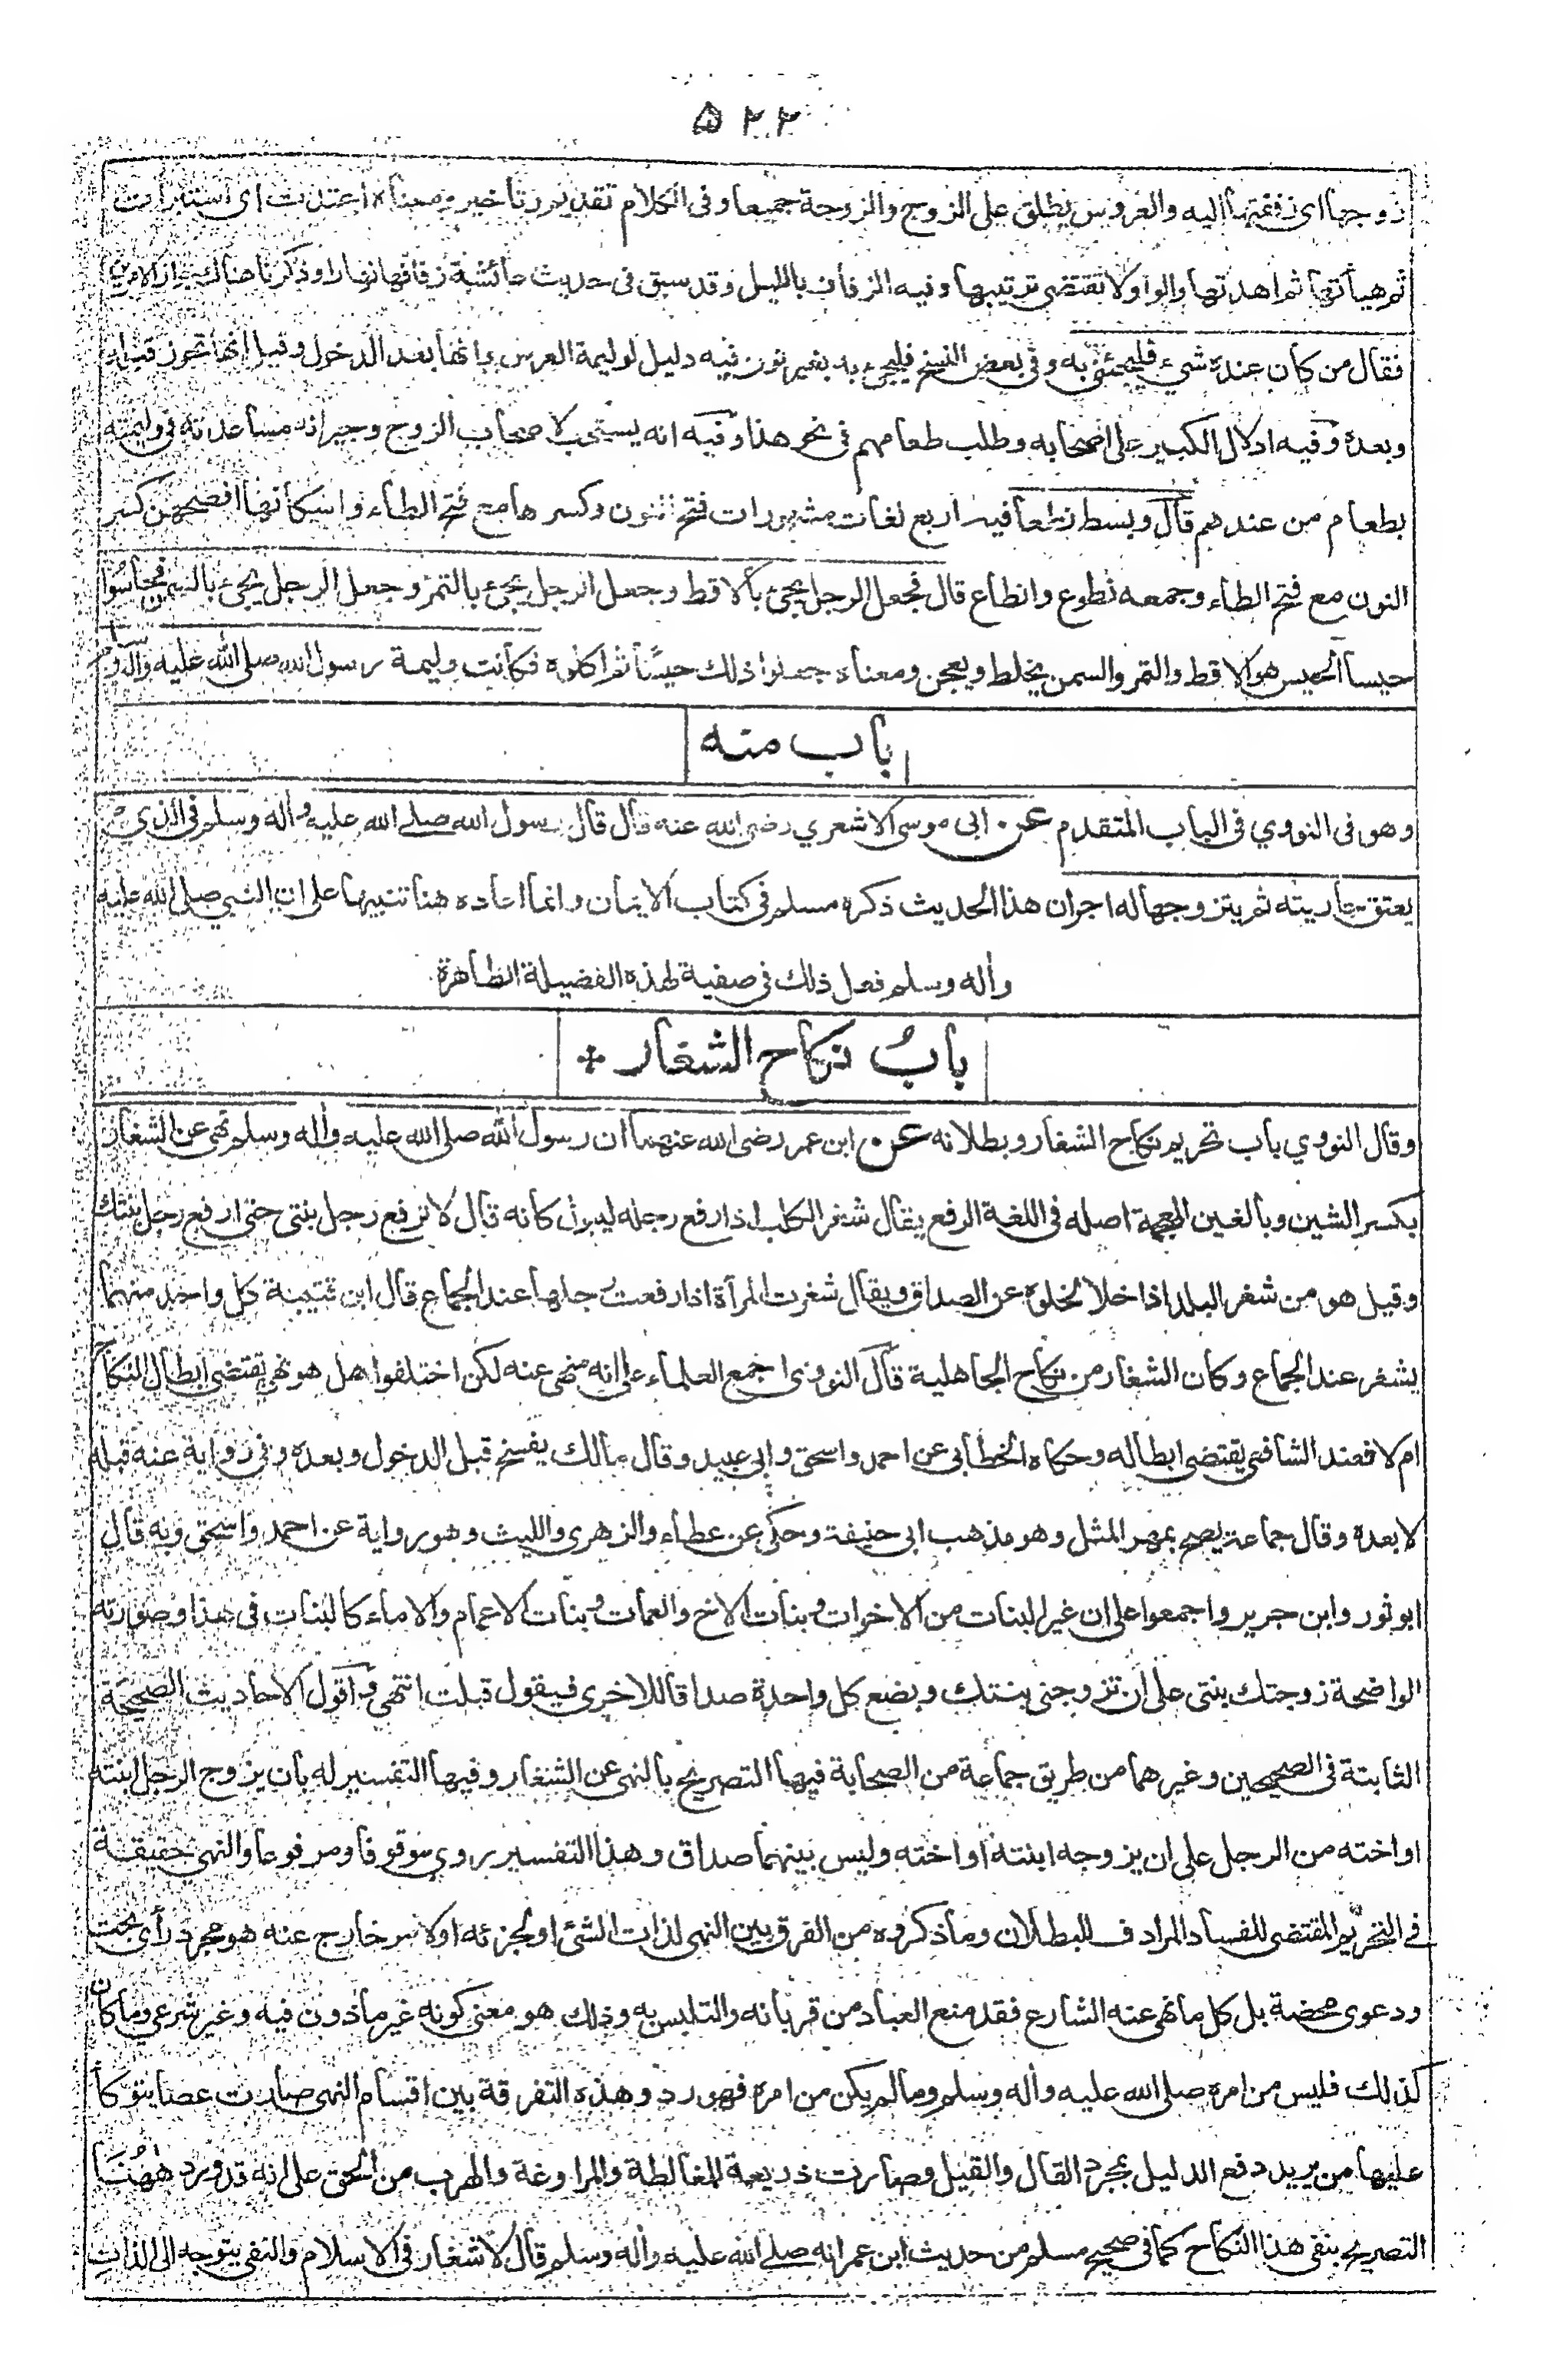 ۵۲۲
زوجها اى زففتها اليه والعروس يطلق على الزوج والزوجة جميعا وفى الكلام تقديم وتأخير ومعناه اعتدت اى استبرأت
ثم هيأتها ثم اهدتها والواو لا تقتضى ترتيبها وفيه الزفاف بالليل وقد سبق فى حديث عائشة زفافها نهارا وذكرنا هناك جواز الامرين
فقال من كان عنده شىء فليجئنى به وفى بعض النسخ فليجىء به بغير نون فيه دليل لوليمة العرس وانها بعد الدخول وقيل انها تجوز قبله
وبعده وفيه ادلال الكبير على اصحابه وطلب طعامهم فى نحو هذا وفيه انه يستحب لاصحاب الزوج وجيرانه مساعدته فى وليمته
بطعام من عندهم قال وبسط نطعا فيه اربع لغات مشهورات فتح النون وكسرها مع فتح الطاء واسكانها افصحهن كسر
النون مع فتح الطاء وجمعه نطوع وانطاع قال فجعل الرجل يجىء بالاقط وجعل الرجل يجىء بالتمر وجعل الرجل يجىء بالسمن فحاسوا
حيسا الحيس هو الاقط والتمر والسمن يخلط ويعجن ومعناه جعلوا ذلك حيسا ثم اكلوه فكانت وليمة رسول الله صلى الله عليه وآله وسلم
باب منه
وهو فى النووي فى الباب المتقدم عن ابى موسى الاشعري رضى الله عنه قال قال رسول الله صلى الله عليه وأله وسلم فى الذي
يعتق جاريته ثم يتزوجها له اجران هذا الحديث ذكره مسلم فى كتاب الايمان وانما اعاده هنا تنبيها على ان النبى صلى الله عليه
وأله وسلم فعل ذلك فى صفية لهذه الفضيلة الظاهرة
بابُ نكاح الشغار +
وقال النووي باب تحريم نكاح الشغار وبطلانه عن ابن عمر رضى الله عنهما ان رسول الله صلى الله عليه وأله وسلم نهى عن الشغار
بكسر الشين وبالغين المعجمة اصله فى اللغة الرفع يقال شغر الكلب اذا رفع رجله ليبول كانه قال لا ترفع رجل بنتى حتى ارفع رجل بنتك
وقيل هو من شغر البلد اذا خلا لخلوه عن الصداق ويقال شغرت المرأة اذا رفعت رجلها عند الجماع قال ابن قتيبة كل واحد منهما
يشغر عند الجماع وكان الشغار من نكاح الجاهلية قال النووى اجمع العلماء على انه منهى عنه لكن اختلفوا هل هو نهى يقتضى ابطال النكاح
ام لا فعند الشافعى يقتضى ابطاله وحكاه الخطابى عن احمد واسحق وابى عبيد وقال مالك يفسخ قبل الدخول وبعده وفى رواية عنه قبله
لا بعده وقال جماعة يصح بمهر المثل وهو مذهب ابى حنيفة وحكى عن عطاء والزهرى والليث وهو رواية عن احمد واسحق وبه قال
ابو ثور وابن جرير واجمعوا على ان غير البنات من الاخوات وبنات الاخ والعمات وبنات الاعمام والاماء كالبنات فى هذا وصورته
الواضحة زوجتك بنتى على ان تزوجنى بنتك وبضع كل واحدة صداقا للاخرى فيقول قبلت انتهى واقول الاحاديث الصحيحة
الثابتة فى الصحيحين وغيرهما من طريق جماعة من الصحابة فيها التصريح بالنهى عن الشغار وفيها التفسير له بان يزوج الرجل ابنته
او اخته من الرجل على ان يزوجه ابنته او اخته وليس بينهما صداق وهذا التفسير روي موقوفا ومرفوعا والنهى حقيقة
في التحريم المقتضى للفساد المرادف للبطلان وما ذكروه من الفرق بين النهى لذات الشئ او لجزئه او لامر خارج عنه هو مجرد رأى بحت
ودعوى محضة بل كل ما نهى عنه الشارع فقد منع العباد من قربانه والتلبس به وذلك هو معنى كونه غير ماذون فيه وغير شرعي وما كان
كذلك فليس من امره صلى الله عليه وأله وسلم وما لم يكن من امره فهو رد وهذه التفرقة بين اقسام النهى صارت عصا يتوكأ
عليها من يريد دفع الدليل بمجرد القال والقيل وصارت ذريعة للمغالطة والمراوغة والهرب من الحق على انه قد ورد ههُنَا
التصريح بنفى هذا النكاح كما فى صحيح مسلم من حديث ابن عمر انه صلى الله عليه وأله وسلم قال لا شغار فى الاسلام والنفى يتوجه الى الذات